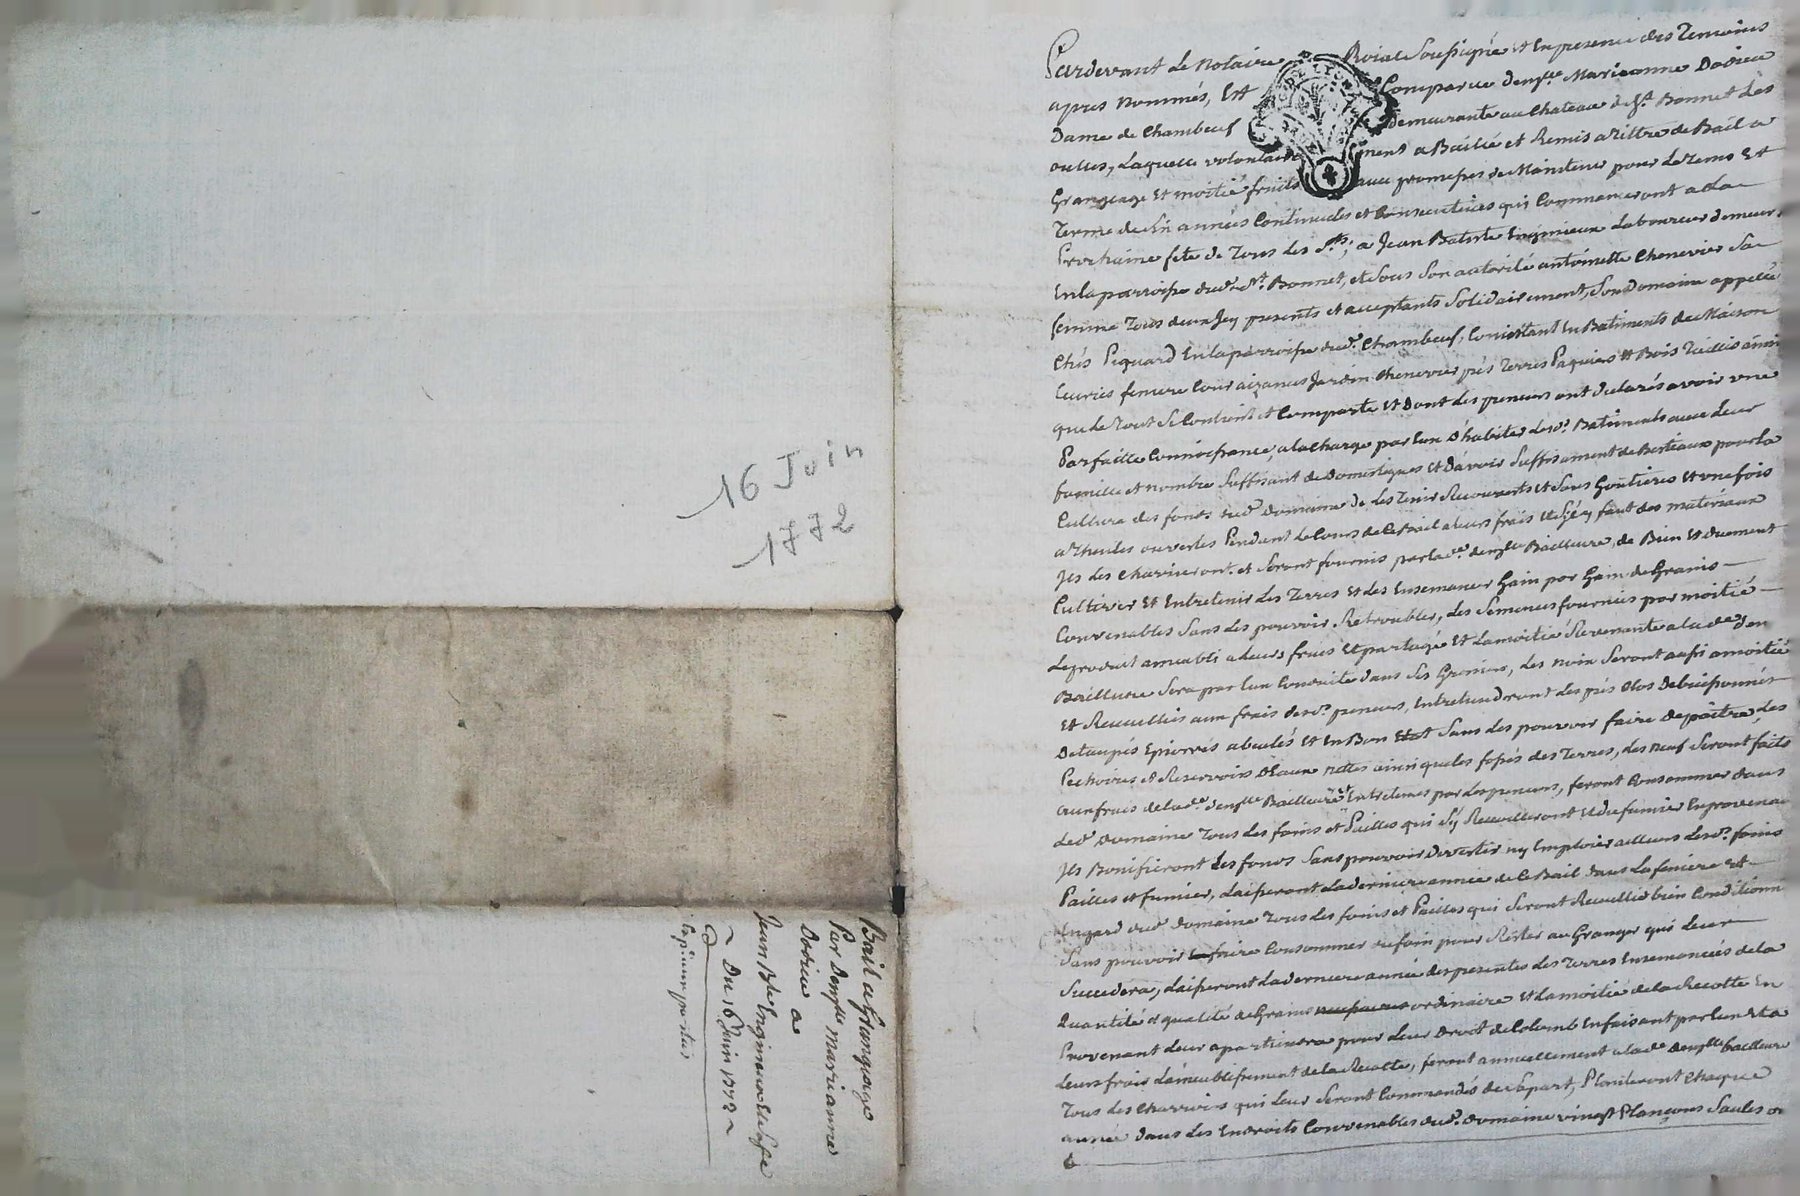 16 Juin
1772
Bail a Grangeage
Par Demlle Marianne
Dodieu
a
Jean Bte Enginieux & sa fe
Du 16 Juin 1772
Pardevant Le Notaire Roial Soussigné et En presence des Temoins
apres nommés, Est Comparue demlle Marianne Dodieu
Dame de Chambeuf demeurante au Chateau de St Bonnet Les
oulles, Laquelle volontairement a Baillé et Remis a Tiltre de Bail a
Grangeage Et moitié fruits avec promesses de Maintenir pour Le Tems Et
Terme de Six années Continuelles et Consecutives qui Commenceront a La
Prochaine fete de Tous Les Sts, a Jean Batiste Enginieux Laboureur demeurt
En la parroisse dud. St. Bonnet, et Sous Son autorité antoinette Chenevier Sa
femme Tous deux Icy presents et acceptants Solidairement, Son Domaine appellé
Chés Piquard En la parroisse dud. Chambeuf, Consistant En Batiments de Maison
Ecuries feniere Cour aizances Jardin Chenevier prés Terres Paquiers et Bois Taillis ainsi
que Le Tout Se Contient et Comporte Et Dont Les preneurs ont declarés avoir une
Parfaitte Connoissance, a La Charge par Eux D'habiter lesd. Batiments avec Leur
famille et nombre Suffisant de Domestiques Et D'avoir Suffisament de Bestiaux pour La
Culture des fonds dud. Domaine De Les Tenir Recouverts et Sans Goutieres Et une fois
a Thuiles ouvertes Pendant Le Cours de Ce Bail a Leurs frais Et S'il y faut des materiaux
Ils Les Charrieront et Seront fournis par lade. demlle Bailleure, de Bien Et duement
Cultiver Et Entretenir Les Terres Et Les Ensemencer Gain par Gain de Grains
Convenables Sans Les pouvoir Retroubler, Les Semences fournies par moitié
Le produit ameubli a Leurs frais Et partagé Et La moitié Revenante a lade dem
Bailleure Sera par Eux Conduitte dans Ses Greniers, Les noix Seront aussi a moitié
Et Recueillies aux frais desd. preneurs, Entretiendront Les prés Clos Debuissonnés
Detaupés Epierrés abealés Et En Bon Etat Sans Les pouvoir faire depaitre, Les
Pechoires et Reservoirs D'Eaux nettes ainsi que Les fossés des Terres, Les neuf Seront faits
aux frais de lade. demlle Bailleure Et Entretenus par Les preneurs, feront Consommer dans
Led. Domaine Tous Les foins et Pailles qui S'y Recueilleront Et du fumier En provenant
Ils Bonifieront Les fonds Sans pouvoir Divertir ny Emploier ailleurs Lesd. foins
Pailles et fumier, Laisseront La derniere année de Ce Bail dans La feniere Et
Engard dud. Domaine Tous Les foins et Pailles qui Seront Recueillis bien Conditionn
Sans pouvoir faire Consommer du foin pour Rester au Granger qui Leur
Succedera, Laisseront La derniere année des presentes Les Terres Ensemencées de La
Quantité et qualité de Grains ordinaire Et La moitié de La Recolte En
Provenant Leur apartiendra pour Leur Droit de Colomb En faisant par Eux Et a
Leurs frais L'ameublissement de La Recolte, feront annuellement a lade demlle Bailleure
Tous Les Charrois qui Leur Seront Commandés de Sa part, Planteront Chaque
année dans Les Endroits Convenables dud. Domaine vingt Plançons Saules ou